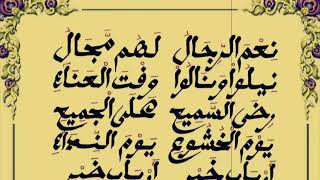 نِعْمَ الرِّجَالْ لَهُم مَّجَالْ
نِيلُوا وَنَالُوا وَقْتَ الْعَنَاءِ
رِضَى السَّمِيعْ عَلَى الْجَمِيعْ
يَوْمَ الْخُشُوعْ يَوْمَ النِّدَاءِ